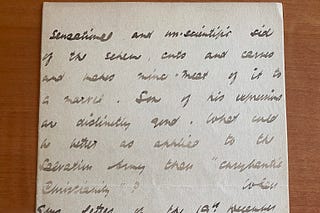 sensational and un-scientific side
of the scheme, cuts and carves
and makes mince-meat of it to
a marvel. Some of his expressions
are distinctly good. What could
be better as applied to the
Salvation Army than "corybantic
Christianity"? When
letter of the 19th December